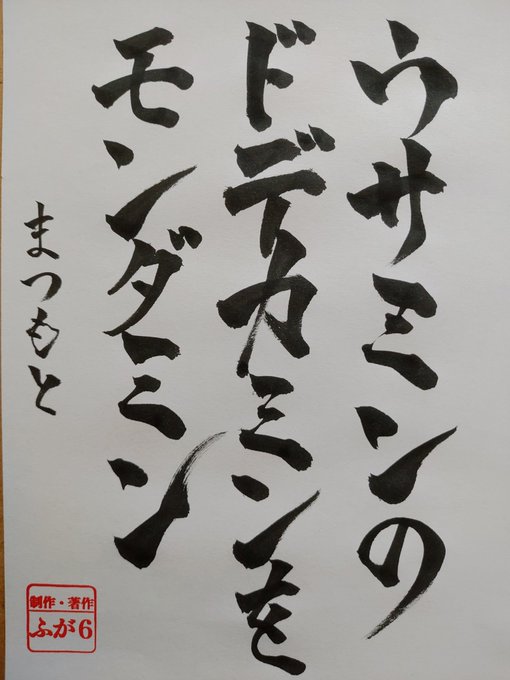 ウサミンの
ドデカミンを
モンダミン
まつもと
制作・著作
ふが6